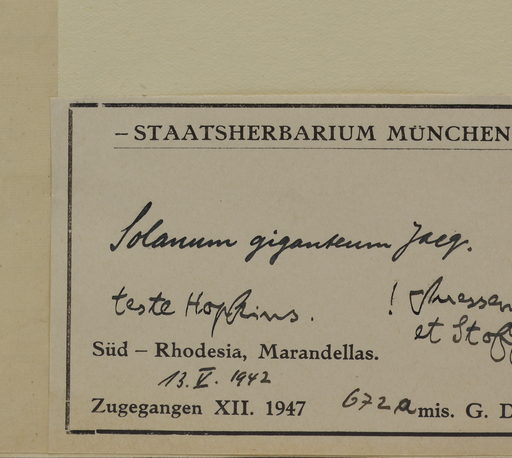 – STAATSHERBARIUM MÜNCHEN
Solanum giganteum Jacq.
teste Hopkins. !
et
Süd – Rhodesia, Marandellas.
13. V. 1942
Zugegangen XII. 1947 672a mis. G. D